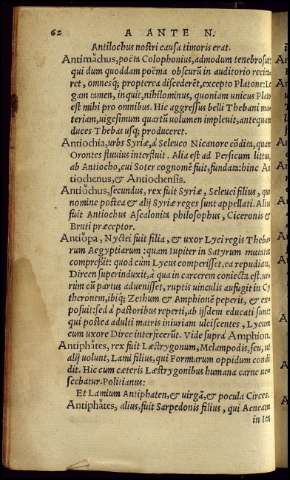 62 A ANTE N.
Antilochus nostri causa timoris erat.
Antimachus, poëta Colophonius, admodum tenebrosus:
qui dum quoddam poëma obscurũ in auditorio recita-
ret, omnesq; propterea discederẽt, excepto Platone: Le
gam tamen, inquit, nihilominus, quoniam unicus Plato
est mihi pro omnibus. Hic aggressus belli Thebani ma-
teriam, uigesimum quartũ uolumen impleuit, antequam
duces Thebas usq; produceret.
Antiochia, urbs Syriæ, à Seleuco Nicanore cõdita, quã
Orontes fluuius interfluit. Alia est ad Persicum littus,
ab Antiocho, cui Soter cognomẽ fuit, fundata: hinc An
tiochenus, & Antiochensis.
Antiochus, secundus, rex fuit Syriæ, Seleuci filius, quo
nomine postea & alij Syriæ reges sunt appellati. Alius
fuit Antiochus Ascalonita philosophus, Ciceronis &
Bruti præceptor.
Antiopa, Nyctei fuit filia, & uxor Lyci regis Theba
rum Aegyptiarum: quam Iupiter in Satyrum mutatus
compressit: quod cùm Lycus comperisset, ea repudiata,
Dircen superinduxit, à qua in carcerem coniecta est. ue-
rùm cũ partus aduenisset, ruptis uinculis aufugit in Cy
theronem, ibiq; Zethum & Amphionẽ peperit, & ex
posuit: sed à pastoribus reperti, ab ijsdem educati sunt:
qui postea adulti matris iniuriam ulciscentes, Lycum
cum uxore Dirce interfecerũt. Vide suprà Amphion.
Antiphates, rex fuit Læstrygonum, Melampodis, seu, ut
alij uolunt, Lami filius, qui Formarum oppidum condi
dit. Hic cum cæteris Læstrygonibus humana carne ue-
scebatur. Politianus:
Et Lamium Antiphaten, & uirgã, & pocula Circes.
Antiphates, alius, fuit Sarpedonis filius, qui Aeneam
in Ita